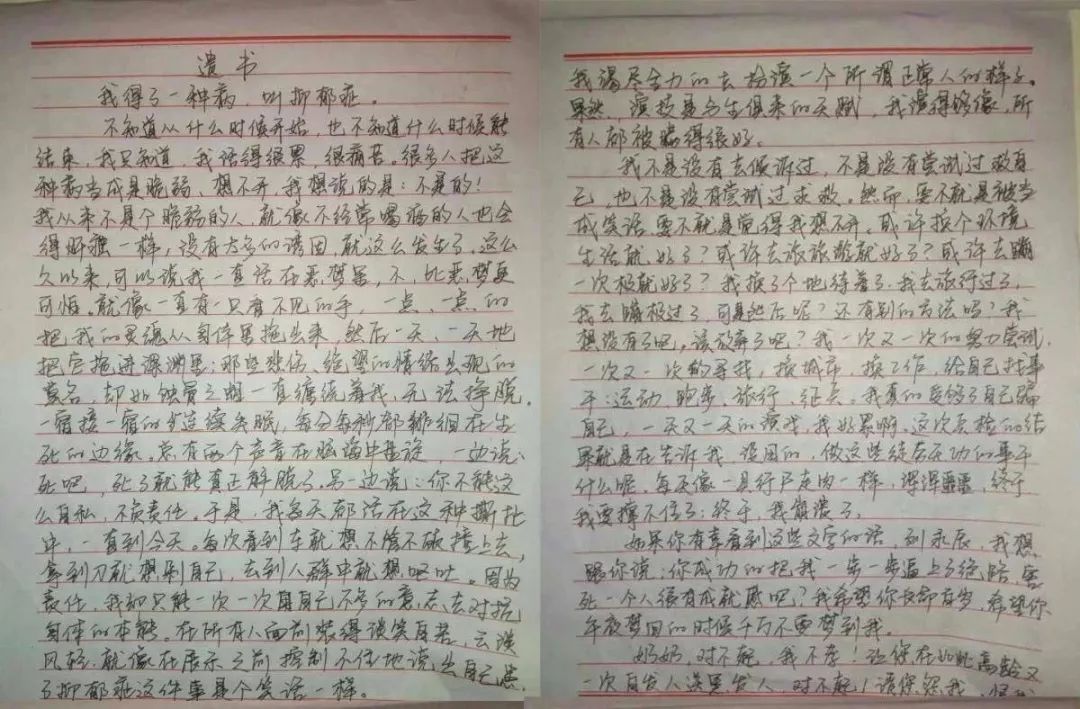 遗书
我得了一种病,叫抑郁症。
不知道从什么时候开始,也不知道什么时候能
结束,我只知道,我活得很累,很痛苦。很多人把这
种病当成是脆弱、想不开,我想说的是:不是的!
我从来不是个脆弱的人,就像不经常喝酒的人也会
得肝癌一样,没有太多的诱因,就这么发生了。这么
久以来,可以说我一直活在恶梦里,不,比恶梦更
可怕。就像一直有一只看不见的手,一点、一点的
把我的灵魂从身体里拖出来,然后一天、一天地
把它拖进深渊里;那些悲伤、绝望的情绪出现的
莫名,却如蚀骨之蛆一直缠绕着我,无法挣脱。
一宿接一宿的连续失眠,每分每秒都徘徊在生
死的边缘。总有两个声音在脑海中盘旋,一边说:
死吧,死了就能真正解脱了。另一边说:你不能这
么自私,不负责任。于是,我每天都活在这种撕扯
中,一直到今天。每次看到车就想不管不顾撞上去,
拿到刀就想剁自己,去到人群中就想呕吐。因为
责任,我却只能一次一次用自己不多的意志去对抗
身体的本能。在所有人面前装得谈笑自若,云淡
风轻,就像在展示之前控制不住地说出自己患
了抑郁症这件事是个笑话一样。
我竭尽全力的去扮演一个所谓正常人的样子。
果然,演技是与生俱来的天赋,我演得够像,所
有人都被骗得很好。
我不是没有去倾诉过,不是没有尝试过救自
己,也不是没有尝试过求救。然而,要不就是被当
成笑话,要不就是觉得我想不开。或许换个环境
生活就好了?或许去旅旅游就好了?或许去蹦
一次极就好了?我换了个地待着了,我去旅行过了,
我去蹦极过了,可是然后呢?还有别的方法吗?我
想没有了吧,该放弃了吧?我一次又一次的努力尝试,
一次又一次的寻找,换城市,换工作,给自己找事
干:运动、跑步、旅行、征兵。我真的受够了自己骗
自己,一天又一天的演戏,我好累啊。这次体检的结
果就是在告诉我,没用的,做这些徒劳无功的事干
什么呢。每天像一具行尸走肉一样,浑浑噩噩,终于
我要撑不住了;终于,我崩溃了。
如果你有幸看到这些文字的话,我想
跟你说:你成功的把我一步一步逼上了绝路,害
死一个人很有成就感吧?我希望你长命百岁,希望你
午夜梦回的时候千万不要梦到我。
妈妈,对不起,我不孝!让您在如此高龄又
一次白发人送黑发人,对不起!请您怨我、